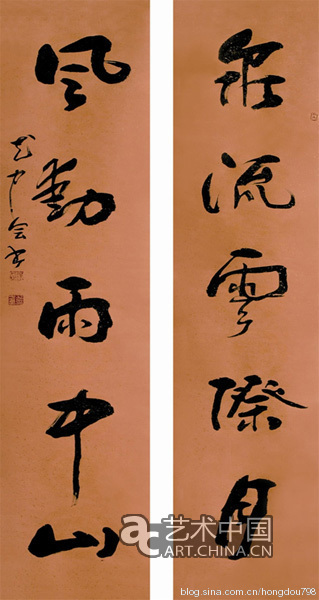 泉流雲際月
風動雨中山
艺术中国
ART.CHINA.CN
blog.sina.com.cn/hongdou798